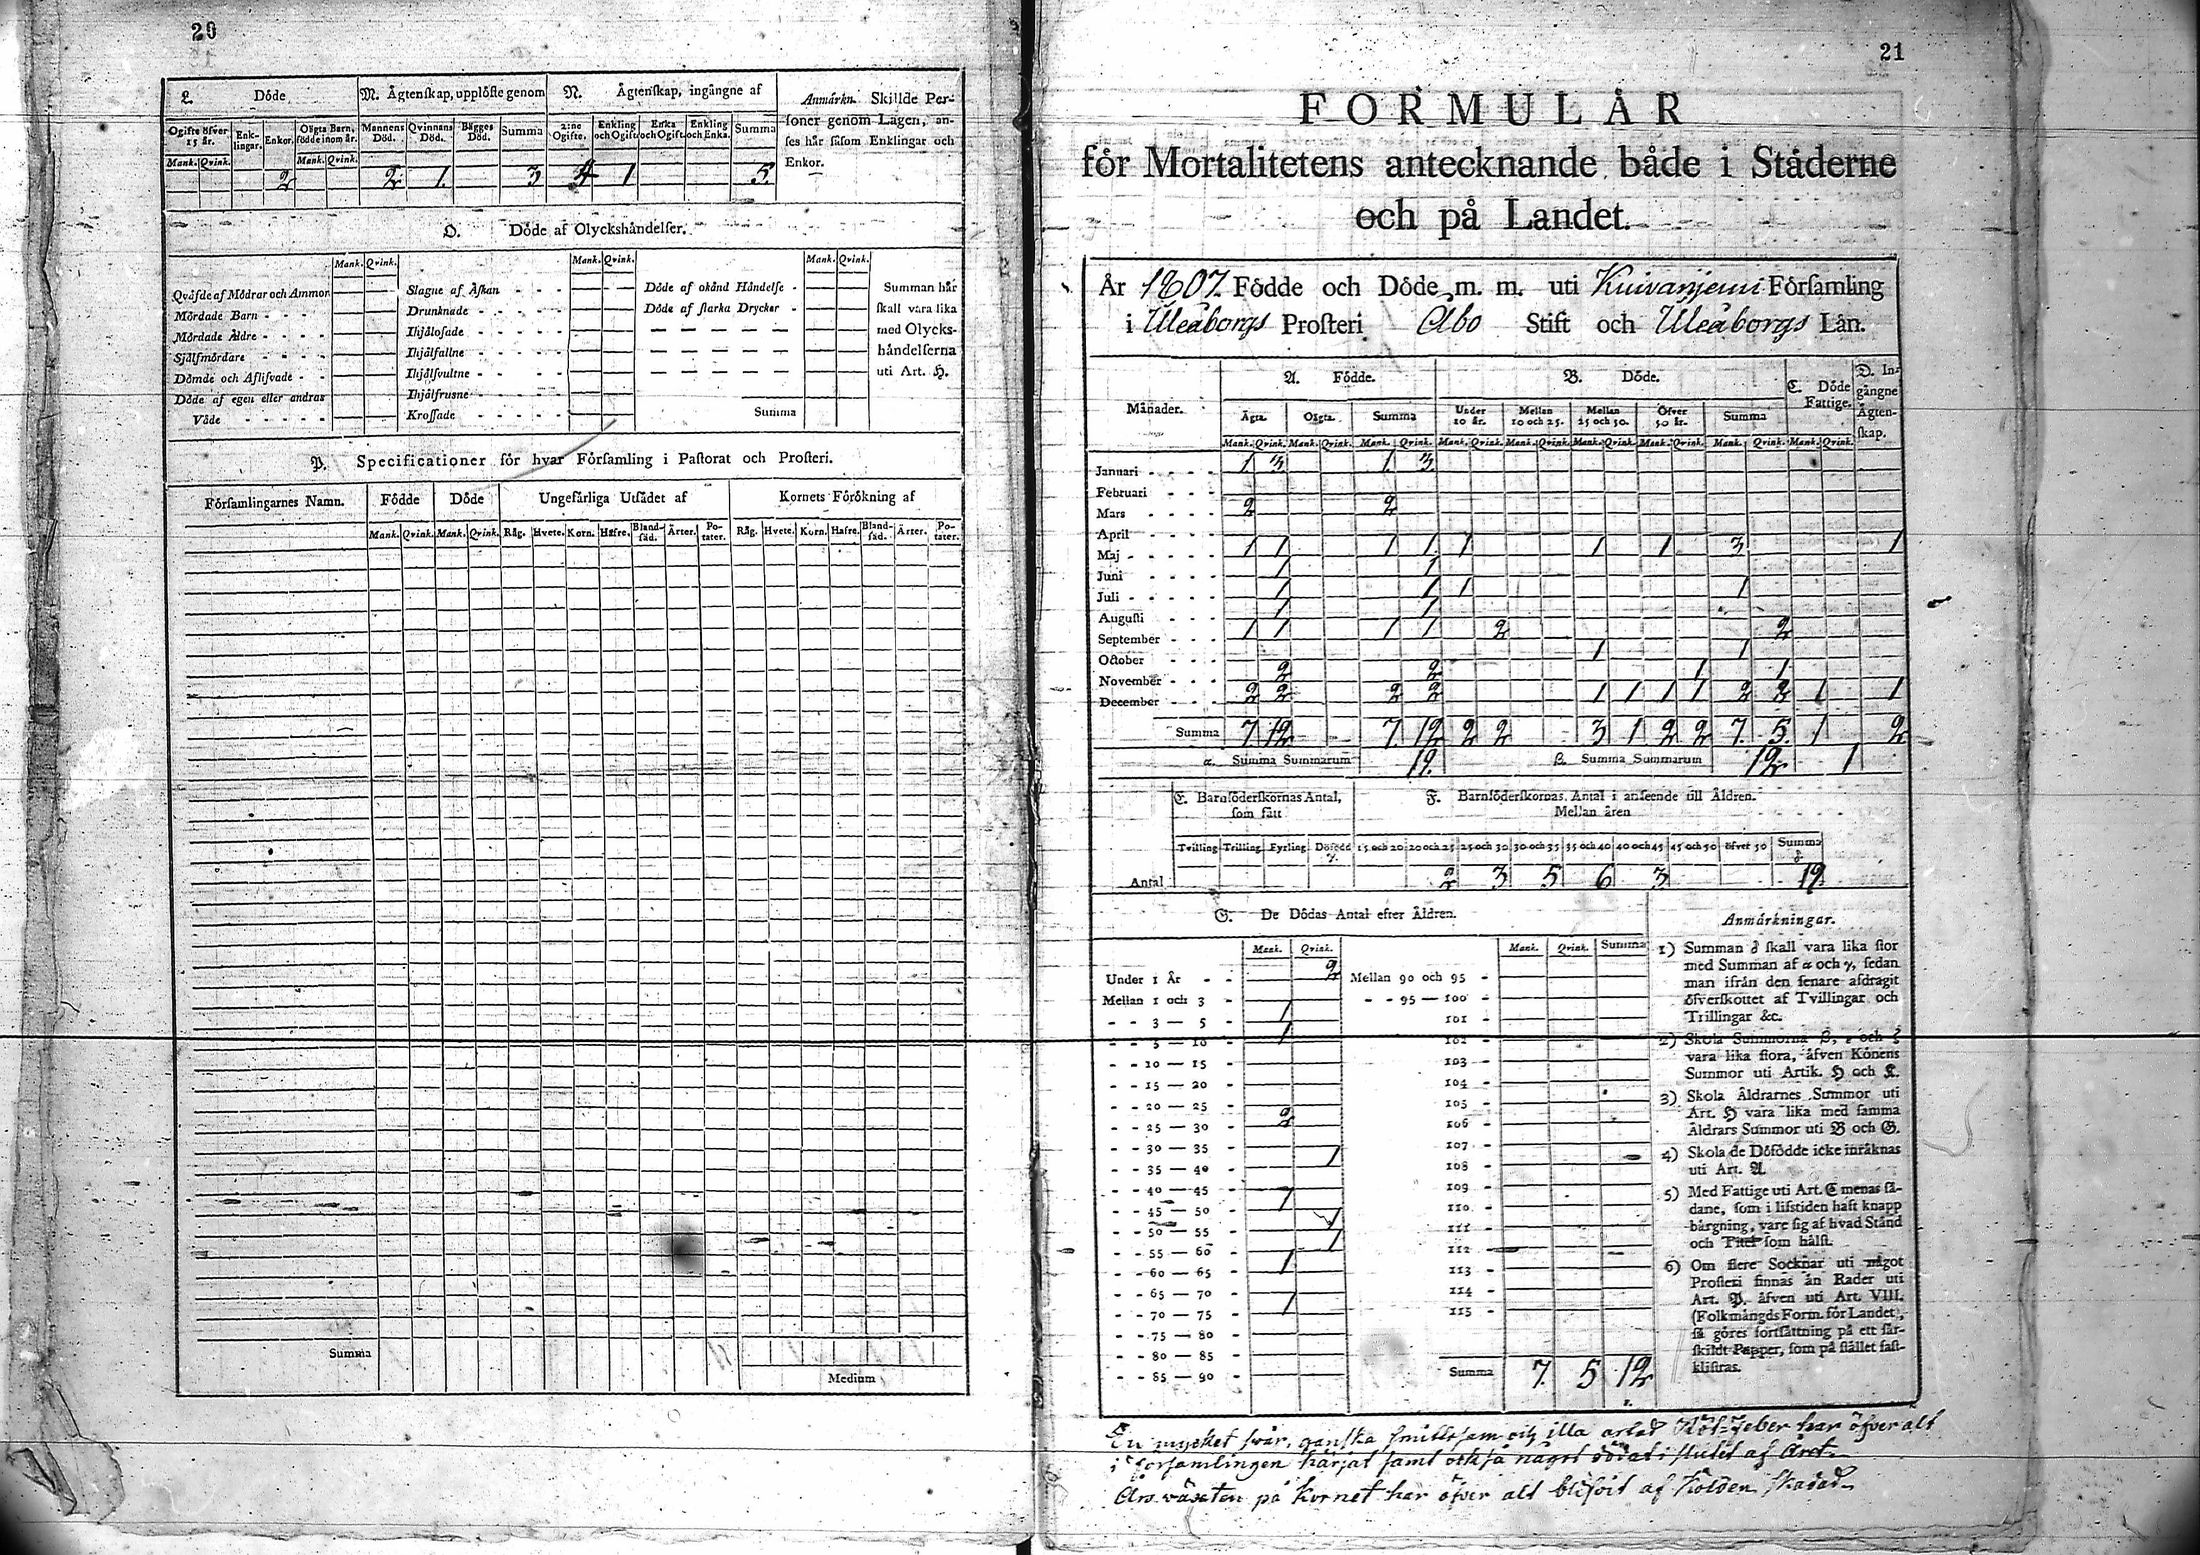 20
L. Döde
M. Ägtenskap, upplöste genom
N. Ägtenskap, ingångne af
Anmärkn. Skillde Personer genom Lagen, anses här såsom Enklingar och Enkor.
Ogifte öfver 15 år. Enklingar. Enkor. Oägta Barn, födde inom år. Mannens Död. Qvinnans Död. Bägges Död. Summa 2:ne Ogifte. Enkling och Ogift. Enka och Ogift. Enkling och Enka. Summa
Mank. Qvink. Mank. Qvink.
2 2 1. 3 4 1 5.
O. Döde af Olyckshändelser.
Mank. Qvink. Mank. Qvink. Mank. Qvink.
Qväfde af Mödrar och Ammor
Mördade Barn
Mördade Äldre
Självmördare
Dömde och Aflifvade
Döde af egen eller andras
Våde
Slagne af Åskan
Drunknade
Ihjälosade
Ihjälfallne
Ihjälsvultne
Ihjälfrusne
Krossade
Döde af okänd Händelse
Döde af starka Drycker
Summa
Summan här
skall vara lika
med Olycks-
händelserna
uti Art. H.
P. Specificationer för hvar Församling i Pastorat och Prosteri.
Församlingarnes Namn. Födde Döde Ungefärliga Utsädet af Kornets Förökning af
Mank. Qvink. Mank. Qvink. Råg. Hvete. Korn. Hafre. Bland-säd. Ärter. Po-tater. Råg. Hvete. Korn. Hafre. Bland-säd. Ärter. Po-tater.
Summa
Medium
21
FORMULÄR
för Mortalitetens antecknande både i Städerne
och på Landet.
År 1807. Födde och Döde m. m. uti Kuivaniemi Församling
i Uleåborgs Prosteri Åbo Stift och Uleåborgs Län.
Månader.
A. Födde.
B. Döde.
C. Döde Fattige.
D. Ingångne Ägtenskap.
Ägta. Oägta. Summa Under 10 år. Mellan 10 och 25. Mellan 25 och 50. Öfver 50 år. Summa
Mank. Qvink. Mank. Qvink. Mank. Qvink. Mank. Qvink. Mank. Qvink. Mank. Qvink. Mank. Qvink. Mank. Qvink. Mank. Qvink.
Januari 1. 3. 1. 3.
Februari
Mars 2 2
April
Maj 1 1 1 1 1 1 1 3 1
Juni 1 1
Juli 1 1 1 1
Augusti 1 1
September 1 1 1 1 2 2
October 1 1
November 2 2 1 1
December 2 2 2 2 1 1 1 1 2 2 1 1
Summa 7. 12 7. 12 2 2 3 1 2 2 7. 5. 1 2
α. Summa Summarum 19. β. Summa Summarum 12 1
E. Barnföderskornas Antal, som fått
F. Barnföderskornas Antal i anseende till Åldren.
Mellan åren
Tvilling Trilling Fyrling Döfödd γ. 15 och 20 20 och 25 25 och 30 30 och 35 35 och 40 40 och 45 45 och 50 öfver 50 Summa δ
Antal 2 3 5 6 3 19
G. De Dödas Antal efter Åldren.
Mank. Qvink. Mank. Qvink. Summa
Under 1 År 2 Mellan 90 och 95
Mellan 1 och 3 95 — 100
3 — 5 1 101
5 — 10 1 102
10 — 15 103
15 — 20 104
20 — 25 105
25 — 30 2 106
30 — 35 107
35 — 40 1 108
40 — 45 109
45 — 50 1 110
50 — 55 1 111
55 — 60 1 112
60 — 65 1 113
65 — 70 114
70 — 75 1 115
75 — 80
80 — 85
85 — 90 Summa 7. 5 12
Anmärkningar.
1) Summan δ skall vara lika stor
med Summan af α och γ, sedan
man ifrån den senare afdragit
öfverskottet af Tvillingar och
Trillingar &c.
2) Skola Summorna β, ε och ζ
vara lika stora, äfven Könens
Summor uti Artik. H och K.
3) Skola Åldrarnes Summor uti
Art. H vara lika med samma
Åldrars Summor uti B och G.
4) Skola de Döfödde icke inräknas
uti Art. A
5) Med Fattige uti Art. C menas så-
dane, som i lifstiden haft knapp
bärgning, vare sig af hvad Stånd
och Titel som hälst.
6) Om flere Socknar uti något
Prosteri finnas än Rader uti
Art. P. äfven uti Art. VIII.
(Folkmängds Form. för Landet),
så göres fortsättning på ett sär-
skildt Papper, som på stället fast-
klistras.
En mycket svår, ganska smittosam och illa artad Röt-Feber har öfver alt
i församlingen härjat samt också något dödat i slutet af Året.
Års växten på Kornet har öfver alt blifvit af Kölden skadad.